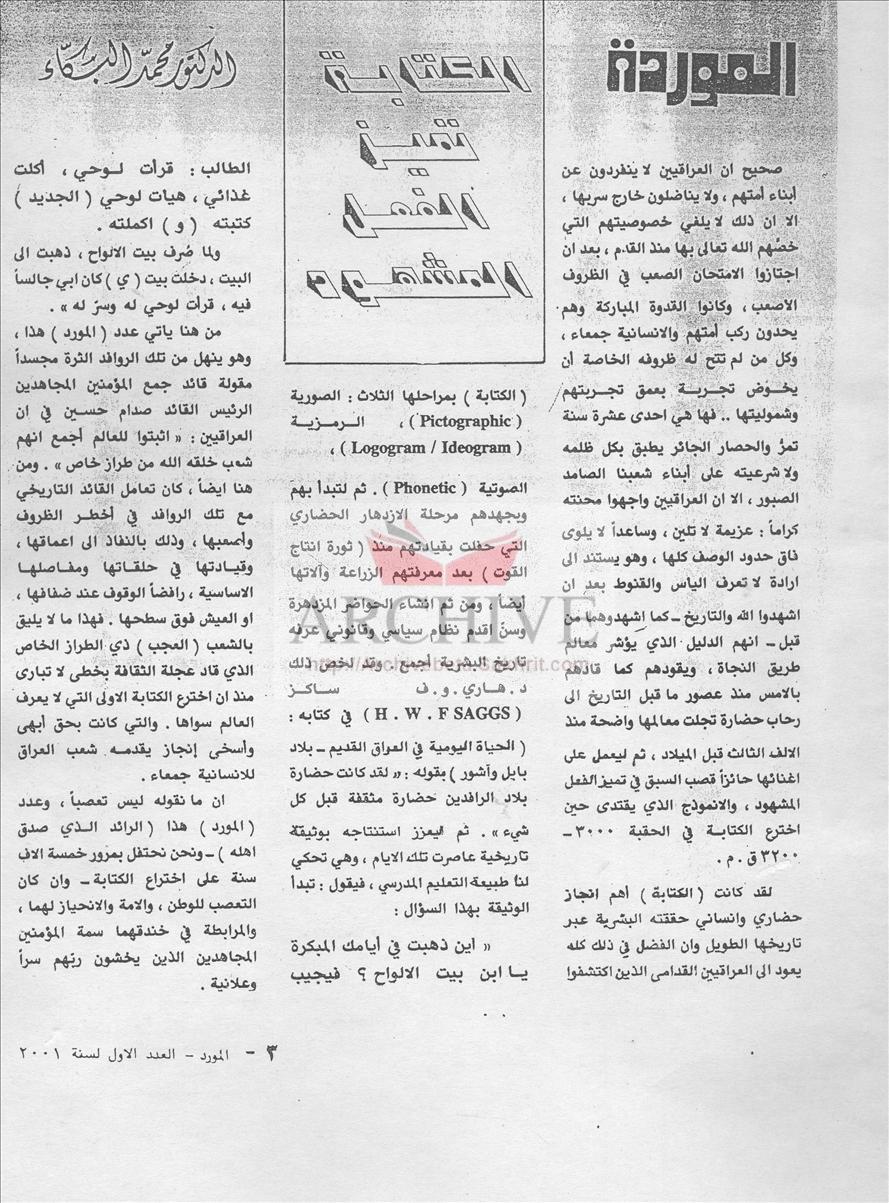 الموردة
صحيح ان العراقيين لا ينفردون عن
أبناء أمتهم ، ولا يناضلون خارج سربها ،
الا ان ذلك لا يلغي خصوصيتهم التي
خصّهم الله تعالى بها منذ القدم ، بعد ان
اجتازوا الامتحان الصعب في الظروف
الاصعب ، وكانوا القدوة المباركة وهم
يحدون ركب أمتهم والانسانية جمعاء ،
وكل من لم تتح له ظروفه الخاصة أن
يخوض تجربة بعمق تجربتهم
وشموليتها .. فها هي احدى عشرة سنة
تمرُّ والحصار الجائر يطبق بكل ظلمه
ولا شرعيته على أبناء شعبنا الصامد
الصبور ، الا ان العراقيين واجهوا محنته
كراماً : عزيمة لا تلين ، وساعداً لا يلوى
فاق حدود الوصف كلها ، وهو يستند الى
ارادة لا تعرف الياس والقنوط بعد ان
اشهدوا الله والتاريخ ــ كما اشهدوهما من
قبل ــ انهم الدليل الذي يؤشر معالم
طريق النجاة ، ويقودهم كما قادهم
بالامس منذ عصور ما قبل التاريخ الى
رحاب حضارة تجلت معالمها واضحة منذ
الالف الثالث قبل الميلاد ، ثم ليعمل على
اغنائها حائزاً قصب السبق في تميز الفعل
المشهود ، والانموذج الذي يقتدى حين
اخترع الكتابة في الحقبة ٣٠٠٠ ــ
٣٢٠٠ ق . م .
لقد كانت ( الكتابة ) أهم انجاز
حضاري وانساني حققته البشرية عبر
تاريخها الطويل وان الفضل في ذلك كله
يعود الى العراقيين القدامى الذين اكتشفوا
الكتابة
تميز
الفعل
المشهود
( الكتابة ) بمراحلها الثلاث : الصورية
( Pictographic ) ، الرمزية
( Logogram / Ideogram ) ،
الصوتية ( Phonetic ) . ثم لتبدأ بهم
وبجهدهم مرحلة الازدهار الحضاري
التي حفلت بقيادتهم منذ ( ثورة انتاج
القوت ) بعد معرفتهم الزراعة وآلاتها
أيضاً ، ومن ثم انشاء الحواضر المزدهرة
وسنّ أقدم نظام سياسي وقانوني عرفه
تاريخ البشرية أجمع . وقد لخص ذلك
د . هاري . و . ف ساكز
( H . W . F SAGGS ) في كتابه :
( الحياة اليومية في العراق القديم ــ بلاد
بابل وآشور ) بقوله : « لقد كانت حضارة
بلاد الرافدين حضارة مثقفة قبل كل
شيء » . ثم ليعزز استنتاجه بوثيقة
تاريخية عاصرت تلك الايام ، وهي تحكي
لنا طبيعة التعليم المدرسي ، فيقول : تبدأ
الوثيقة بهذا السؤال :
« اين ذهبت في أيامك المبكرة
يا ابن بيت الالواح ؟ فيجيب
الدكتور محمد البكاء
الطالب : قرأت لوحي ، أكلت
غذائي ، هيات لوحي ( الجديد )
كتبته ( و ) اكملته .
ولما صُرف بيت الالواح ، ذهبت الى
البيت ، دخلت بيت ( ي ) كان ابي جالساً
فيه ، قرأت لوحي له وسرّ له » .
من هنا ياتي عدد ( المورد ) هذا ،
وهو ينهل من تلك الروافد الثرة مجسداً
مقولة قائد جمع المؤمنين المجاهدين
الرئيس القائد صدام حسين في ان
العراقيين : « اثبتوا للعالم أجمع انهم
شعب خلقه الله من طراز خاص » . ومن
هنا ايضاً ، كان تعامل القائد التاريخي
مع تلك الروافد في أخطر الظروف
وأصعبها ، وذلك بالنفاذ الى اعماقها ،
وقيادتها في حلقاتها ومفاصلها
الاساسية ، رافضاً الوقوف عند ضفافها ،
او العيش فوق سطحها . فهذا ما لا يليق
بالشعب ( العجب ) ذي الطراز الخاص
الذي قاد عجلة الثقافة بخطى لا تبارى
منذ ان اخترع الكتابة الاولى التي لا يعرف
العالم سواها . والتي كانت بحق أبهى
وأسخى إنجاز يقدمه شعب العراق
للانسانية جمعاء .
ان ما نقوله ليس تعصباً ، وعدد
( المورد ) هذا ( الرائد الذي صدق
اهله ) ــ ونحن نحتفل بمرور خمسة الاف
سنة على اختراع الكتابة ــ وان كان
التعصب للوطن ، والامة والانحياز لهما ،
والمرابطة في خندقهما سمة المؤمنين
المجاهدين الذين يخشون ربّهم سراً
وعلانية .
ARCHIVE
٣ - المورد - العدد الاول لسنة ٢٠٠١